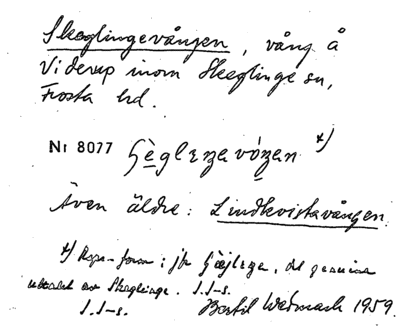 Skeglingevången, vång å
Viderup inom Skeglinge sn,
Frosta hd.
Nr 8077 x)
Även äldre: Lindkvistavången.
x) Rspr-form; jfr det genuina
uttalet av Skeglinge. S.J-s.
S.J-s. Bertil Wedmark 1959.